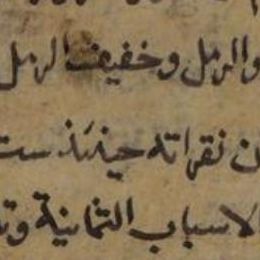 والرمل وخفيف الرمل
نقراته حينئذ ست
الاسباب الثمانية